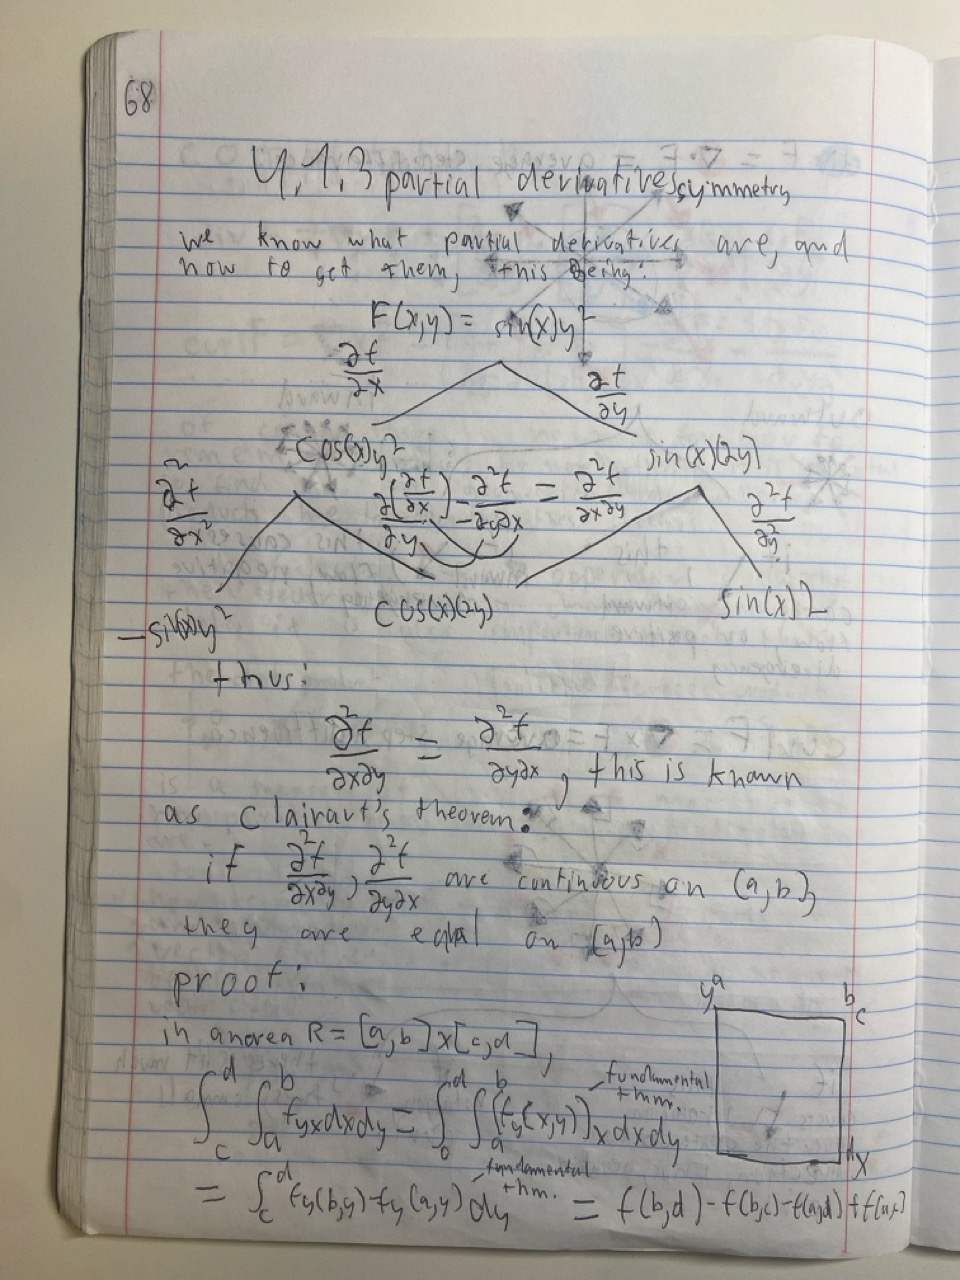 68
4.1.3 partial derivatives symmetry
we know what partial derivatives are, and
how to get them, this being:
F(x,y) = sin(x)y²
∂f/∂x ∂f/∂y
cos(x)y² sin(x)(2y)
∂²f/∂x² ∂(∂f/∂x)/∂y = ∂²f/∂y∂x = ∂²f/∂x∂y ∂²f/∂y²
-sin(x)y² cos(x)(2y) sin(x)2
thus:
∂²f/∂x∂y = ∂²f/∂y∂x, this is known
as clairaut's theorem:
if ∂²f/∂x∂y, ∂²f/∂y∂x are continuous on (a,b),
they are equal on (a,b)
proof:
y a b c
in an area R = [a,b]x[c,d],
∫_c^d ∫_a^b f_yx dxdy = ∫_c^d ∫_a^b (f_y(x,y))_x dxdy fundamental thm.
d x
= ∫_c^d f_y(b,y) - f_y(a,y) dy fundamental thm. = f(b,d) - f(b,c) - f(a,d) + f(a,c)